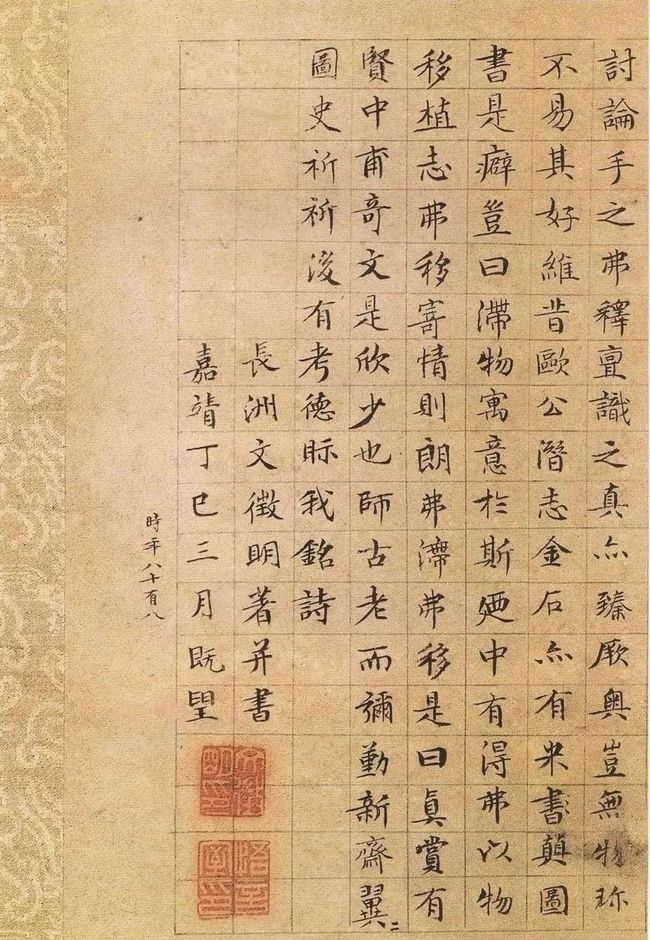 討論手之弗釋亶識之真亦臻厥奧豈無物珎
不易其好維昔歐公潛志金石亦有米書顛圖
書是癖豈曰滯物寓意於斯廼中有得弗以物
移植志弗移寄情則朗弗滯弗移是曰真賞有
賢中甫奇文是欣少也師古老而彌勤新齋翼〻
圖史祈祈後有考德眎我銘詩
長洲文徵明著并書
嘉靖丁巳三月既望
時年八十有八
文徵明印
悟言室印